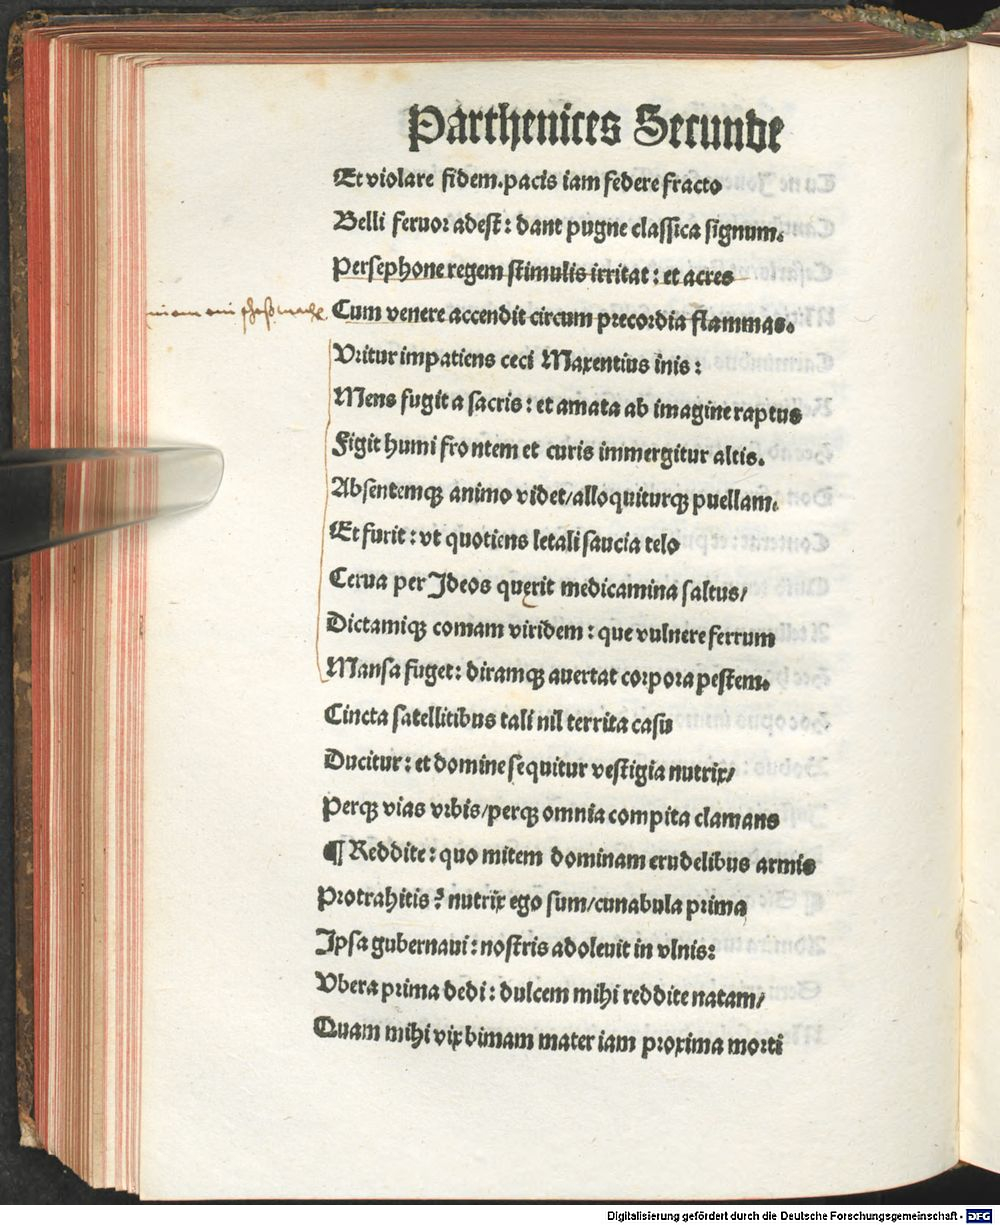 Parthenices Secunde
Et violare fidem. pacis iam federe fracto
Belli feruor adest: dant pugne classica signum.
Persephone regem stimulis irritat: et acres
Cum venere accendit circum precordia flammas.
Vritur impatiens ceci Maxentius inis:
Mens fugit a sacris: et amata ab imagine raptus
Figit humi frontem et curis immergitur altis.
Absentemqꝫ animo videt/alloquiturqꝫ puellam.
Et furit: vt quotiens letali saucia telo
Cerua per Ideos querit medicamina saltus/
Dictamiqꝫ comam viridem: que vulnere ferrum
Mansa fuget: diramqꝫ auertat corpora pestem.
Cincta satellitibus tali nil territa casu
Ducitur: et domine sequitur vestigia nutrix/
Perqꝫ vias vrbis/perqꝫ omnia compita clamans
¶ Reddite: quo mitem dominam crudelibus armis
Protrahitis? nutrix ego sum/cunabula prima
Ipsa gubernaui: nostris adoleuit in vlnis:
Vbera prima dedi: dulcem mihi reddite natam/
Quam mihi vix bimam mater iam proxima morti
Digitalisierung gefördert durch die Deutsche Forschungsgemeinschaft - DFG